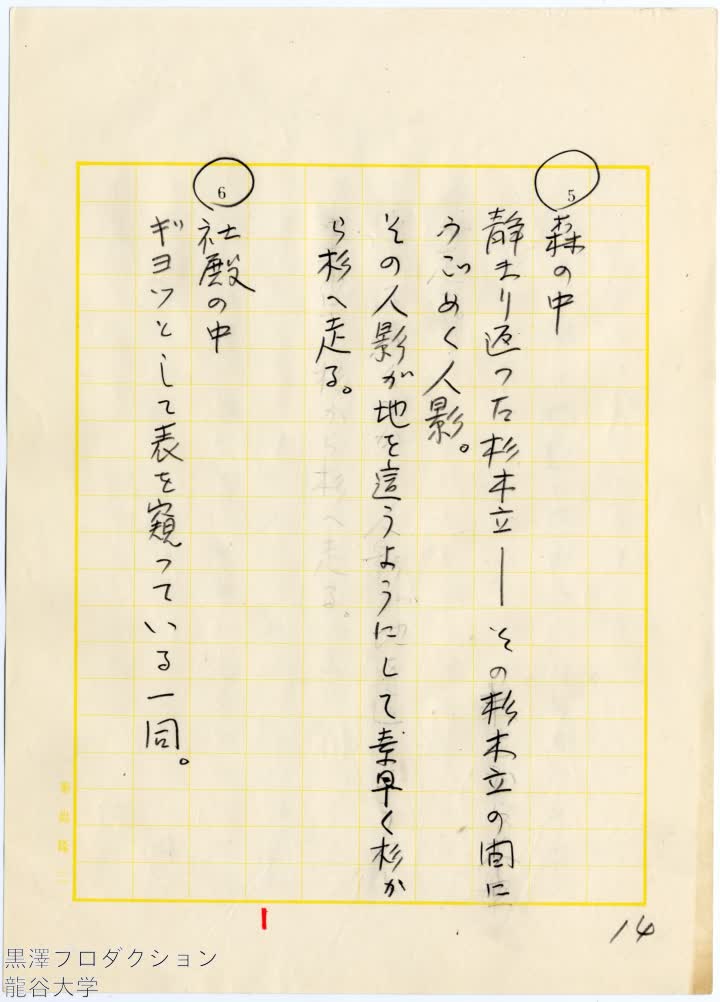 5
森の中
静まり返つた杉木立―その杉木立の間に
うごめく人影。
その人影が地を這うようにして素早く杉か
ら杉へ走る。
6
社殿の中
ギヨツとして表を窺つている一同。
14
黒澤プロダクション
龍谷大学